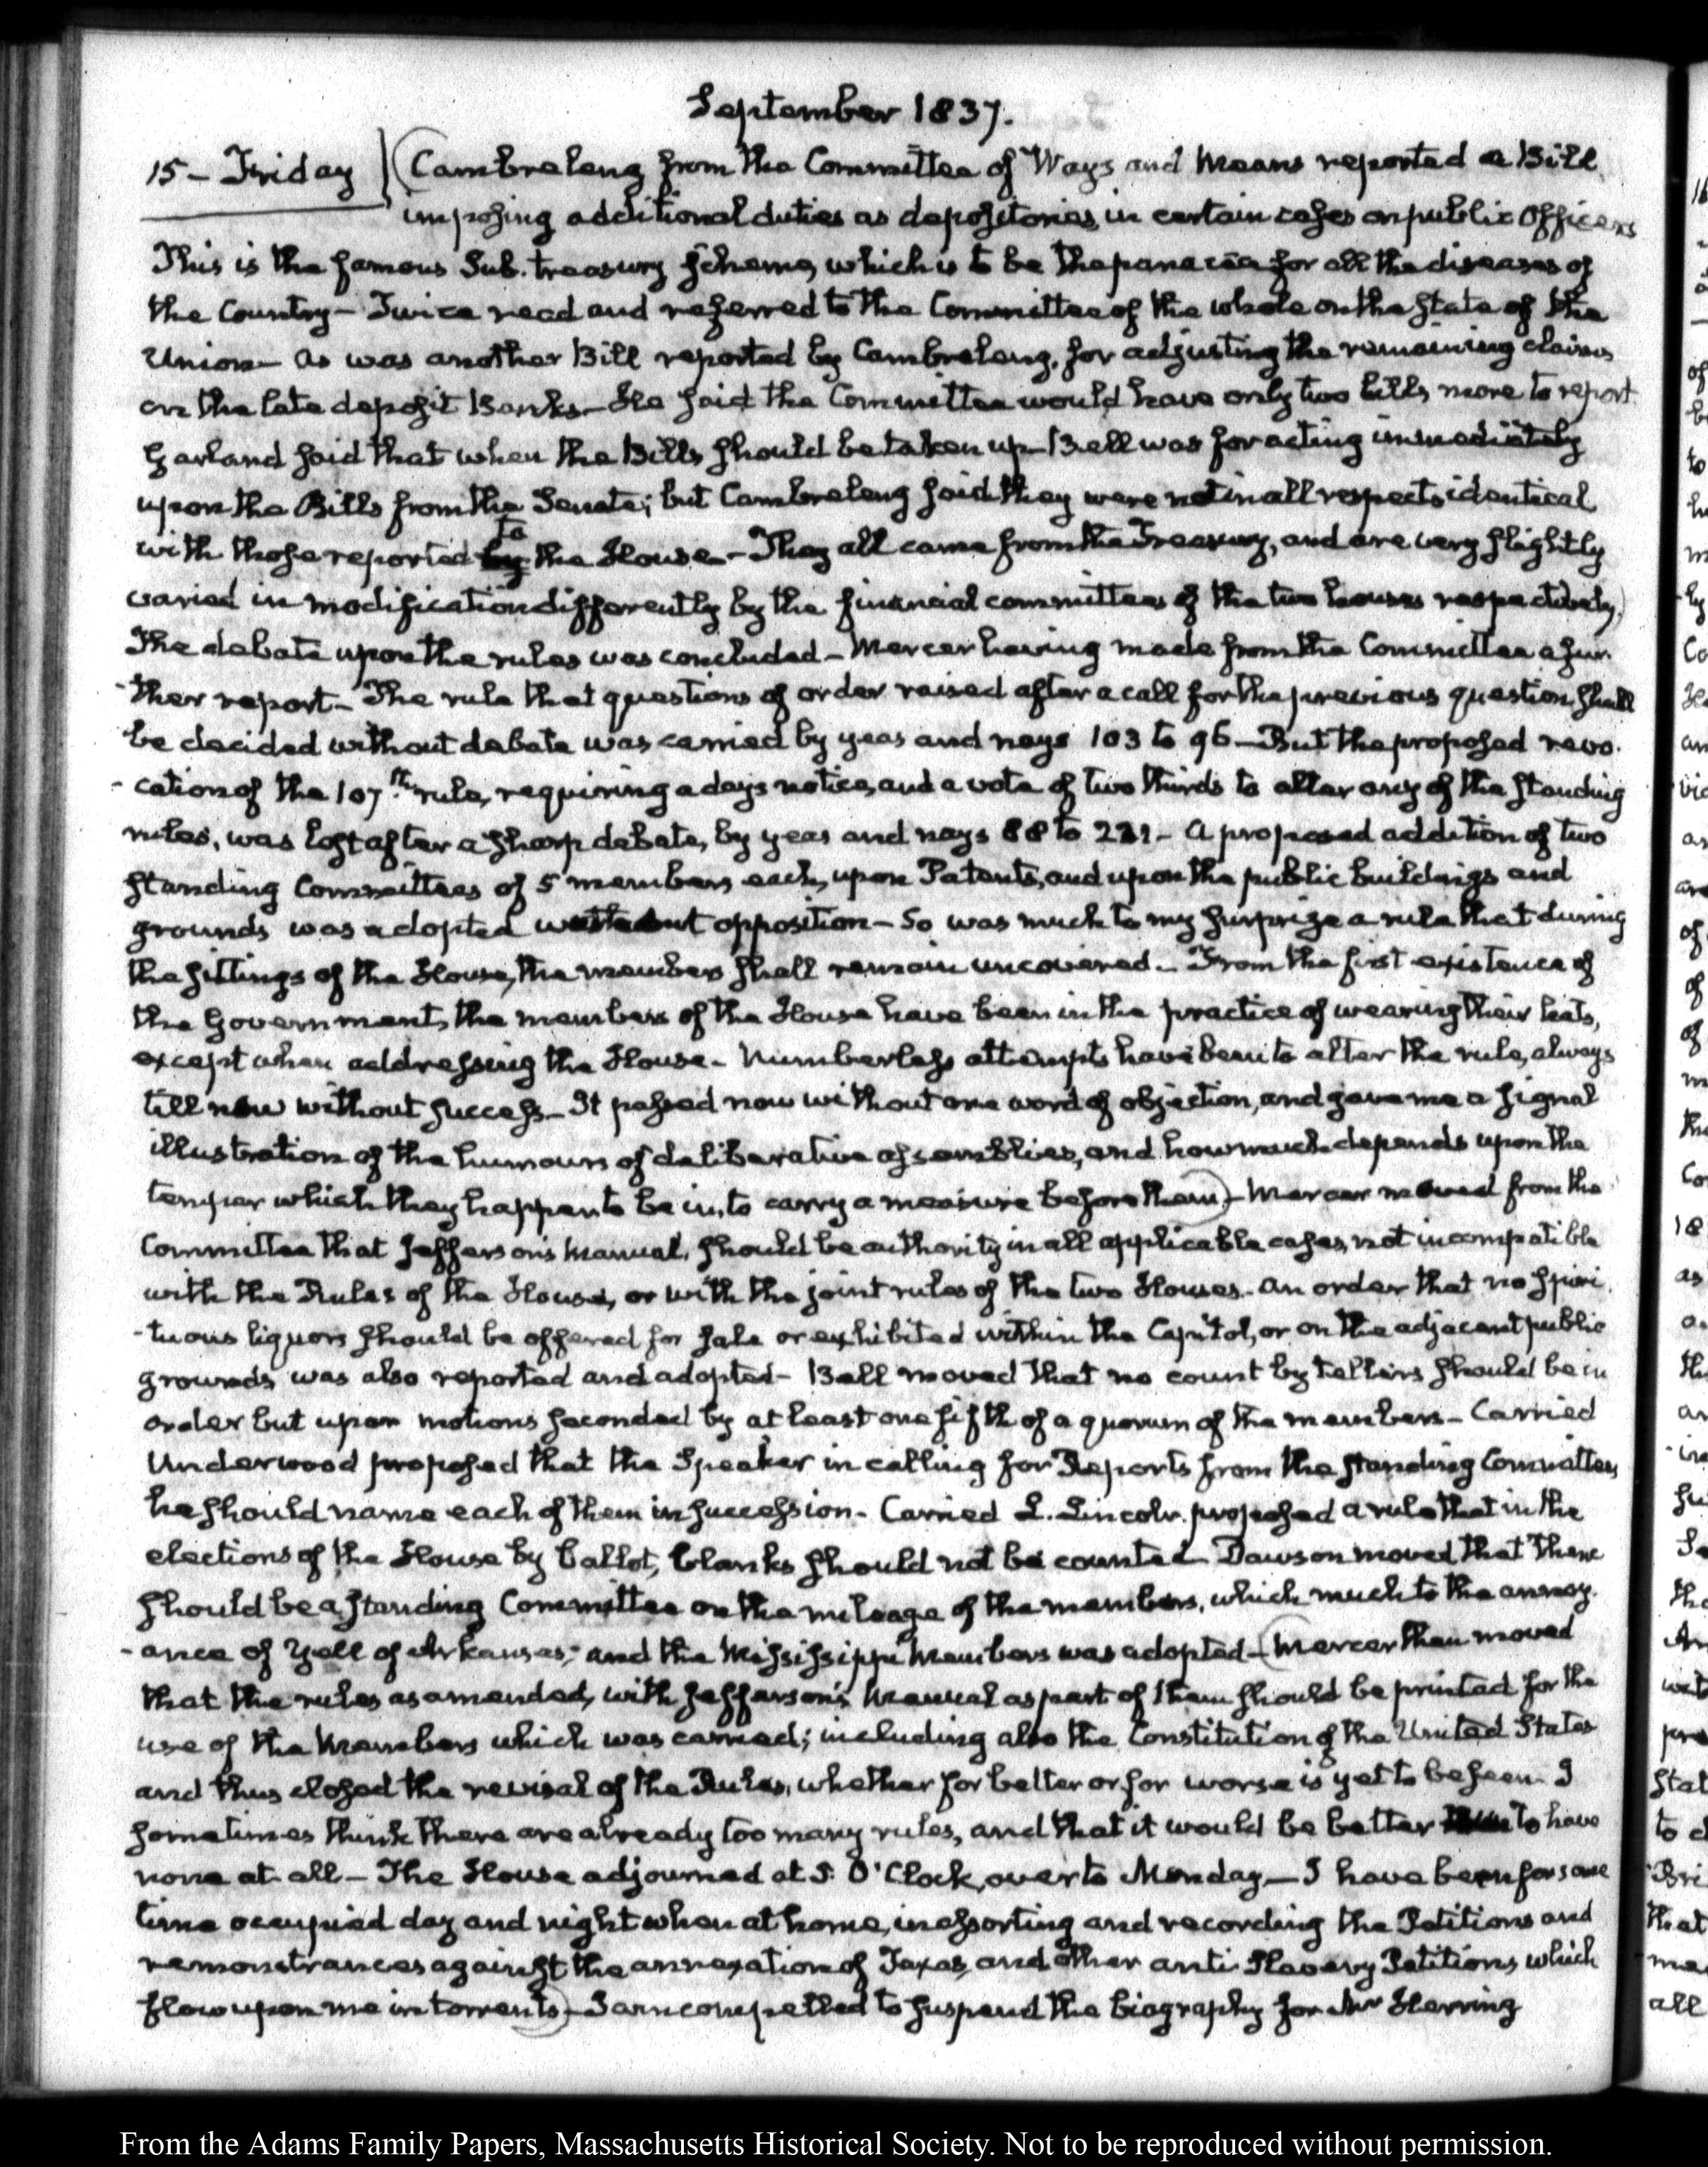 September 1837.
15 - Friday } (Cambreleng from the Committee of Ways and Means reported a Bill
imposing additional duties as depositories, in certain cases on public Officers
This is the famous Sub. treasury scheme, which is to be the panacea for all the diseases of
the Country - Twice read and referred to the Committee of the whole on the State of the
Union - as was another Bill reported by Cambreleng, for adjusting the remaining claims
on the late deposit Banks - He said the Committee would have only two bills more to report
Garland said that when the Bills should be taken up - Bell was for acting immediately
upon the Bills from the Senate; but Cambreleng said they were not in all respects identical
with those reported by to the House - They all came from the Treasury, and are very slightly
varied in modification differently by the financial committees of the two houses respectively)
The debate upon the rules was concluded - Mercer having made from the Committee a fur-
-ther report - The rule that questions of order raised after a call for the previous question shall
be decided without debate was carried by yeas and nays 103 to 96 - But the proposed revo-
-cation of the 107th rule, requiring a days notice, and a vote of two thirds to alter any of the standing
rules, was lost after a sharp debate, by yeas and nays 88 to 221 - A proposed addition of two
standing Committees of 5 members each, upon Patents, and upon the public buildings and
grounds was adopted without opposition - So was much to my surprize a rule that during
the sittings of the House, the members shall remain uncovered - From the first existence of
the Government, the members of the House have been in the practice of wearing their hats,
except when addressing the House - Numberless attempts have been to alter the rule, always
till now without success - It passed now without one word of objection, and gave me a signal
illustration of the humours of deliberative assemblies, and how much depends upon the
temper which they happen to be in, to carry a measure before them) - Mercer moved from the
Committee that Jefferson's Manual, should be authority in all applicable cases, not incompatible
with the Rules of the House, or with the joint rules of the two Houses - An order that no spiri-
-tuous liquors should be offered for sale or exhibited within the Capitol, or on the adjacent public
grounds was also reported and adopted - Bell moved that no count by tellers should be in
order but upon motions seconded by at least one fifth of a quorum of the members - Carried
Underwood proposed that the Speaker in calling for Reports from the standing Committees,
he should name each of them in succession - Carried L. Lincoln proposed a rule that in the
elections of the House by ballot, blanks should not be counted Dawson moved that there
should be a standing Committee on the mileage of the members, which much to the annoy-
-ance of Yell of Arkansas, and the Mississippi Members was adopted - (Mercer then moved
that the rules as amended, with Jefferson's Manual as part of them should be printed for the
use of the Members which was carried; including also the Constitution of the United States
and thus closed the revisal of the Rules, whether for better or for worse is yet to be seen - I
sometimes think there are already too many rules, and that it would be better to have
none at all - The House adjourned at 5. O'Clock, over to Monday - I have been for some
time occupied day and night when at home, in assorting and recording the Petitions and
remonstrances against the annexation of Texas, and other anti-Slavery Petitions, which
flow upon me in torrents) - I am compelled to suspend the biography for Mr Herring
From the Adams Family Papers, Massachusetts Historical Society. Not to be reproduced without permission.